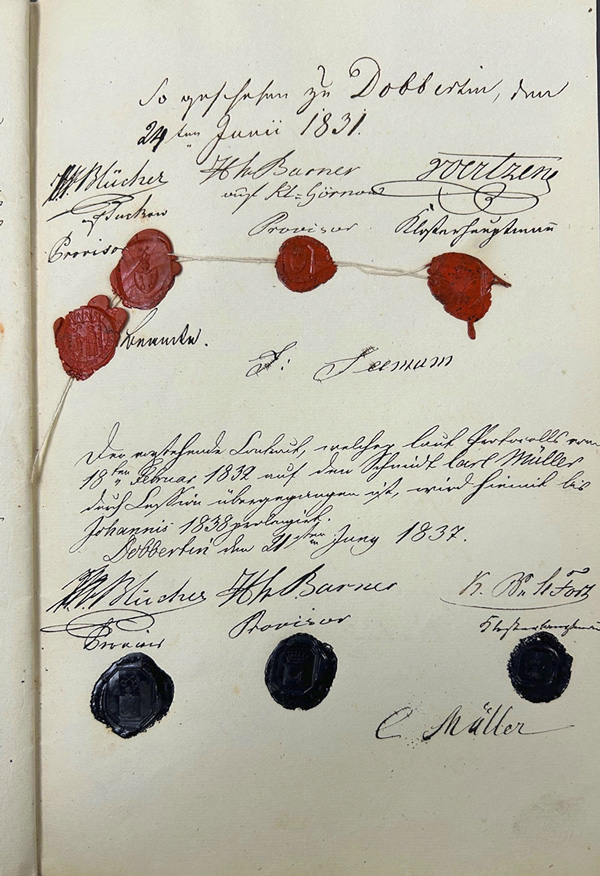 So geschehen zu Dobbertin, den
24ten Junii 1831.
Blücher HhBarner voertzen
auf Kl=Görnow
Provisor Provisor Klosterhauptmann
Beamte.
F: Seemann
Der vorstehende Contract, welcher laut Protocolls vom
18ten Februar 1832 auf den Schmidt Carl Müller
durch Cession übergegangen ist, wird hiemit bis
Johannis 1838 prolongirt.
Dobbertin den 21ten Juny 1837.
Blücher HhBarner
Provisor Klosterhauptmann
C Müller